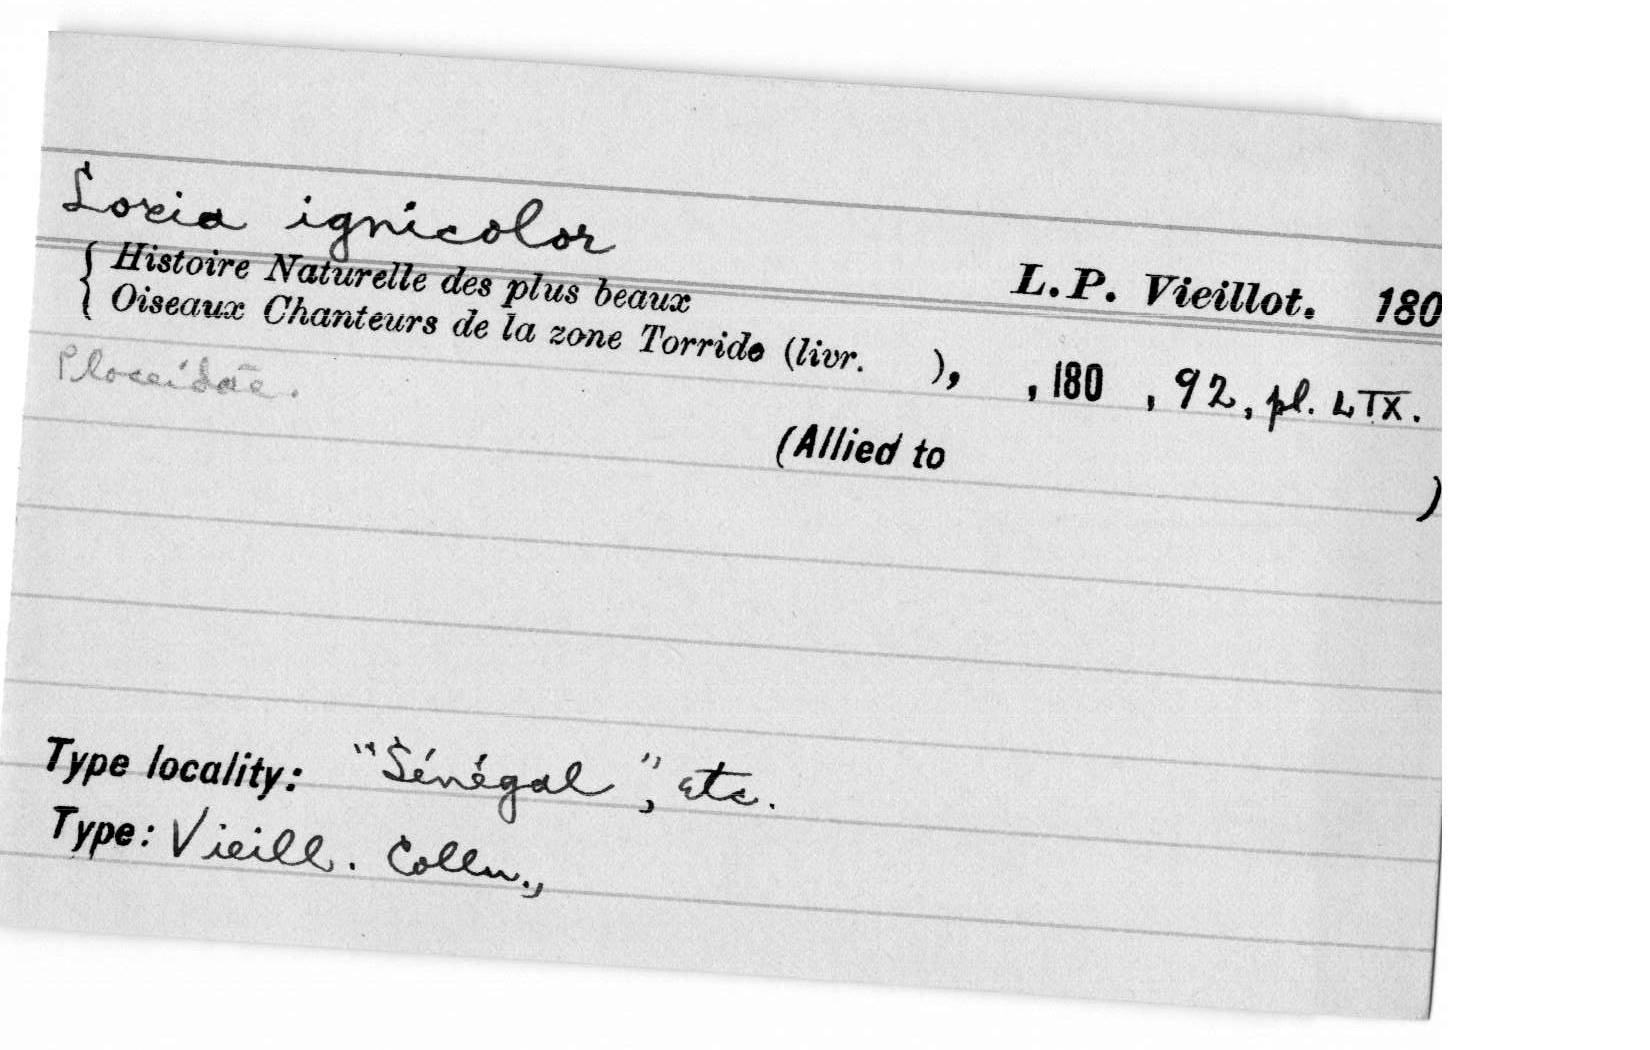 Loxia ignicolor
L.P. Vieillot. 180
{ Histoire Naturelle des plus beaux
Oiseaux Chanteurs de la zone Torride (livr. ), , 180 , 92, pl. LIX.
Ploceidae.
(Allied to )
Type locality: "Sénégal", etc.
Type: Vieill. Colln.,